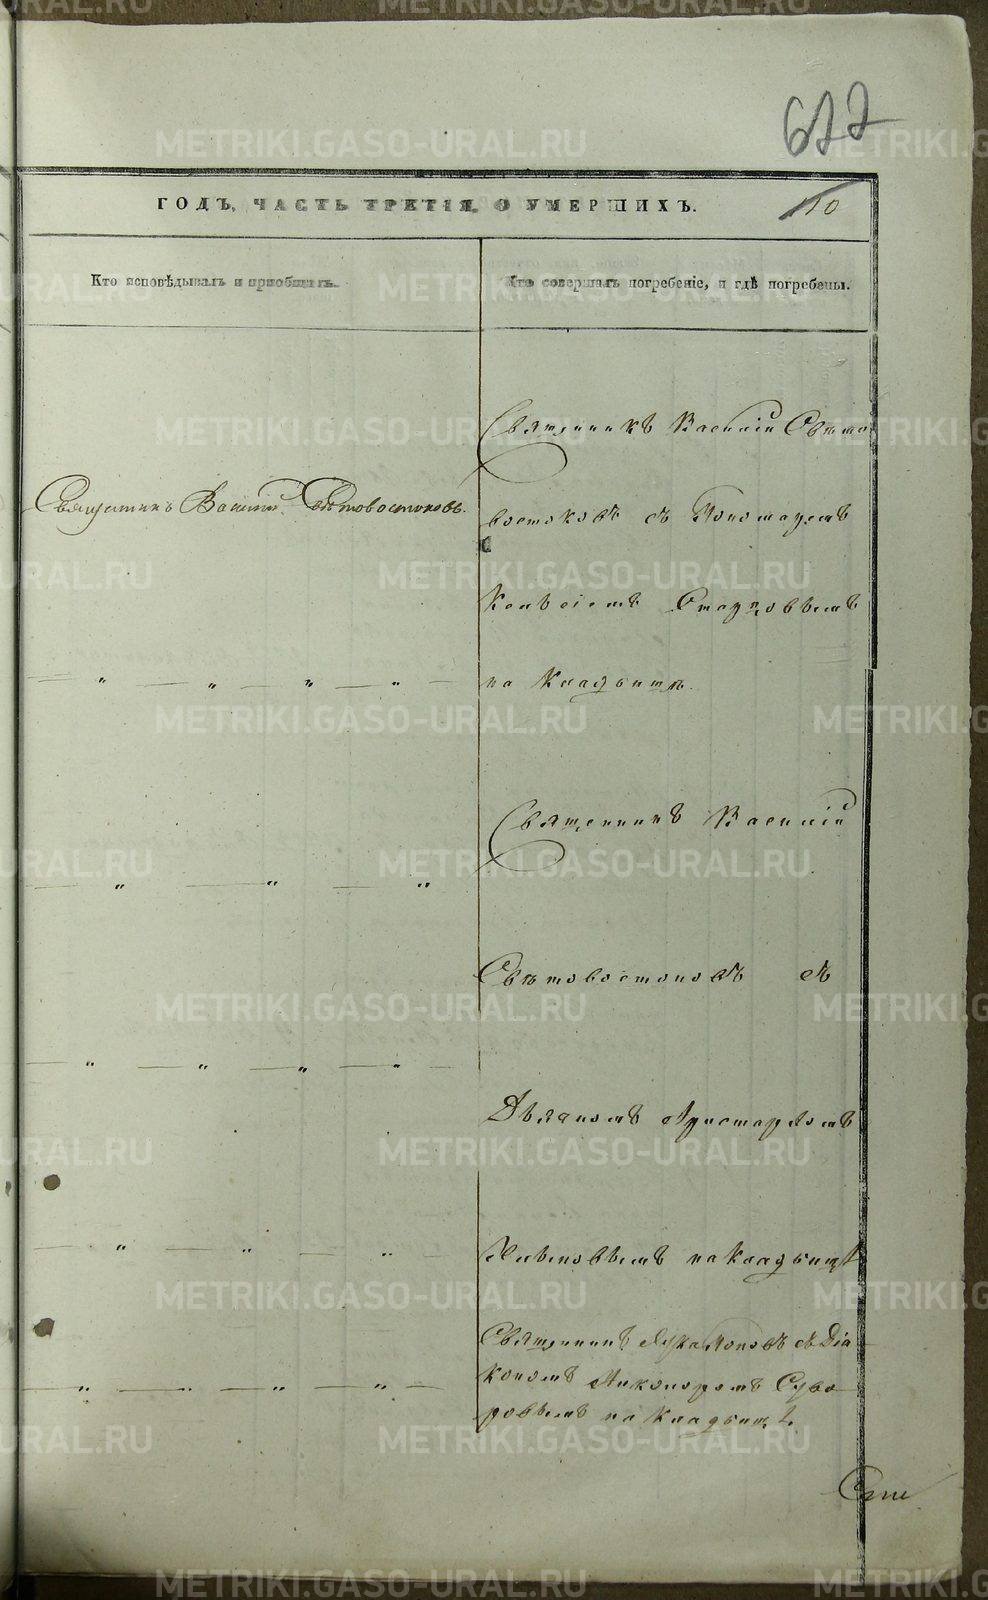 677
ГОДЪ, ЧАСТЬ ТРЕТІЯ, О УМЕРШИХЪ.
10
Кто исповѣдывалъ и пріобщалъ.
Кто совершалъ погребеніе, и гдѣ погребены.
Священникъ Василій Свѣто
Священникъ Василій Свѣтовостоковъ.
востоковъ съ Пономаремъ
на Кладбищѣ.
Священникъ Василій
Свѣтовостоковъ съ
Дьякономъ Аристархомъ
на кладбищѣ
Священникъ Лука Поповъ съ Діа
кономъ Никаноромъ Суво
ровымъ на кладбищѣ.
METRIKI.GASO-URAL.RU